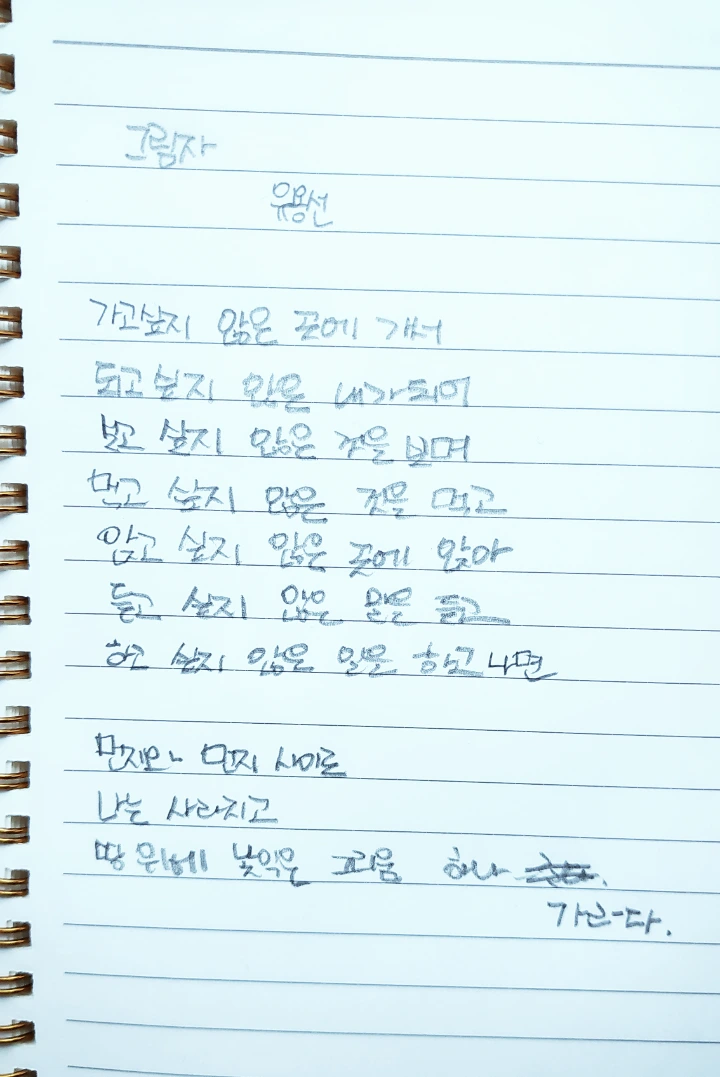 그림자
유용선
가고싶지 않은 곳에 가서
되고 싶지 않은 내가 되어
보고 싶지 않은 것을 보며
먹고 싶지 않은 것을 먹고
앉고 싶지 않은 곳에 앉아
듣고 싶지 않은 말을 듣고
하고 싶지 않은 일을 하고 나면
먼지와 먼지 사이로
나는 사라지고
땅 위에 낯익은 그리움 하나
가른다.